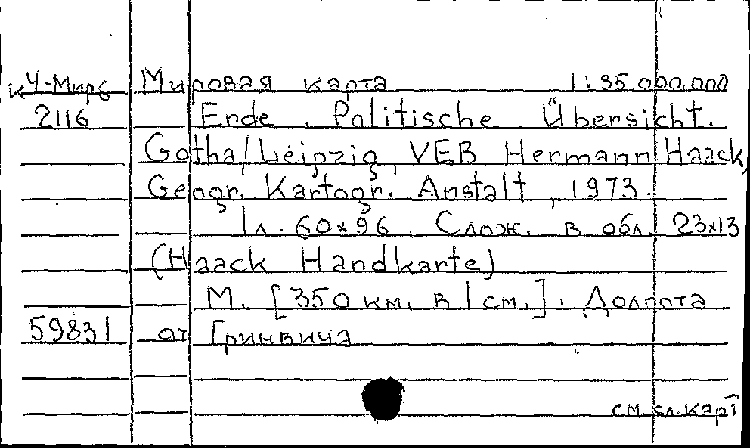 К4-Мир6 Мировая карта 1:35.000.000
2116 Ende. Politische Übersicht.
Gotha/Leipzig, VEB Hermann Haack,
Geogr. Kartogr. Anstalt, 1973.
1л. 60x96. Слож. в обл. 23x13
(Haack Handkarte)
М. [350 км. в 1 см.]. Долгота
59831 от Гринвича
см. сл. карт